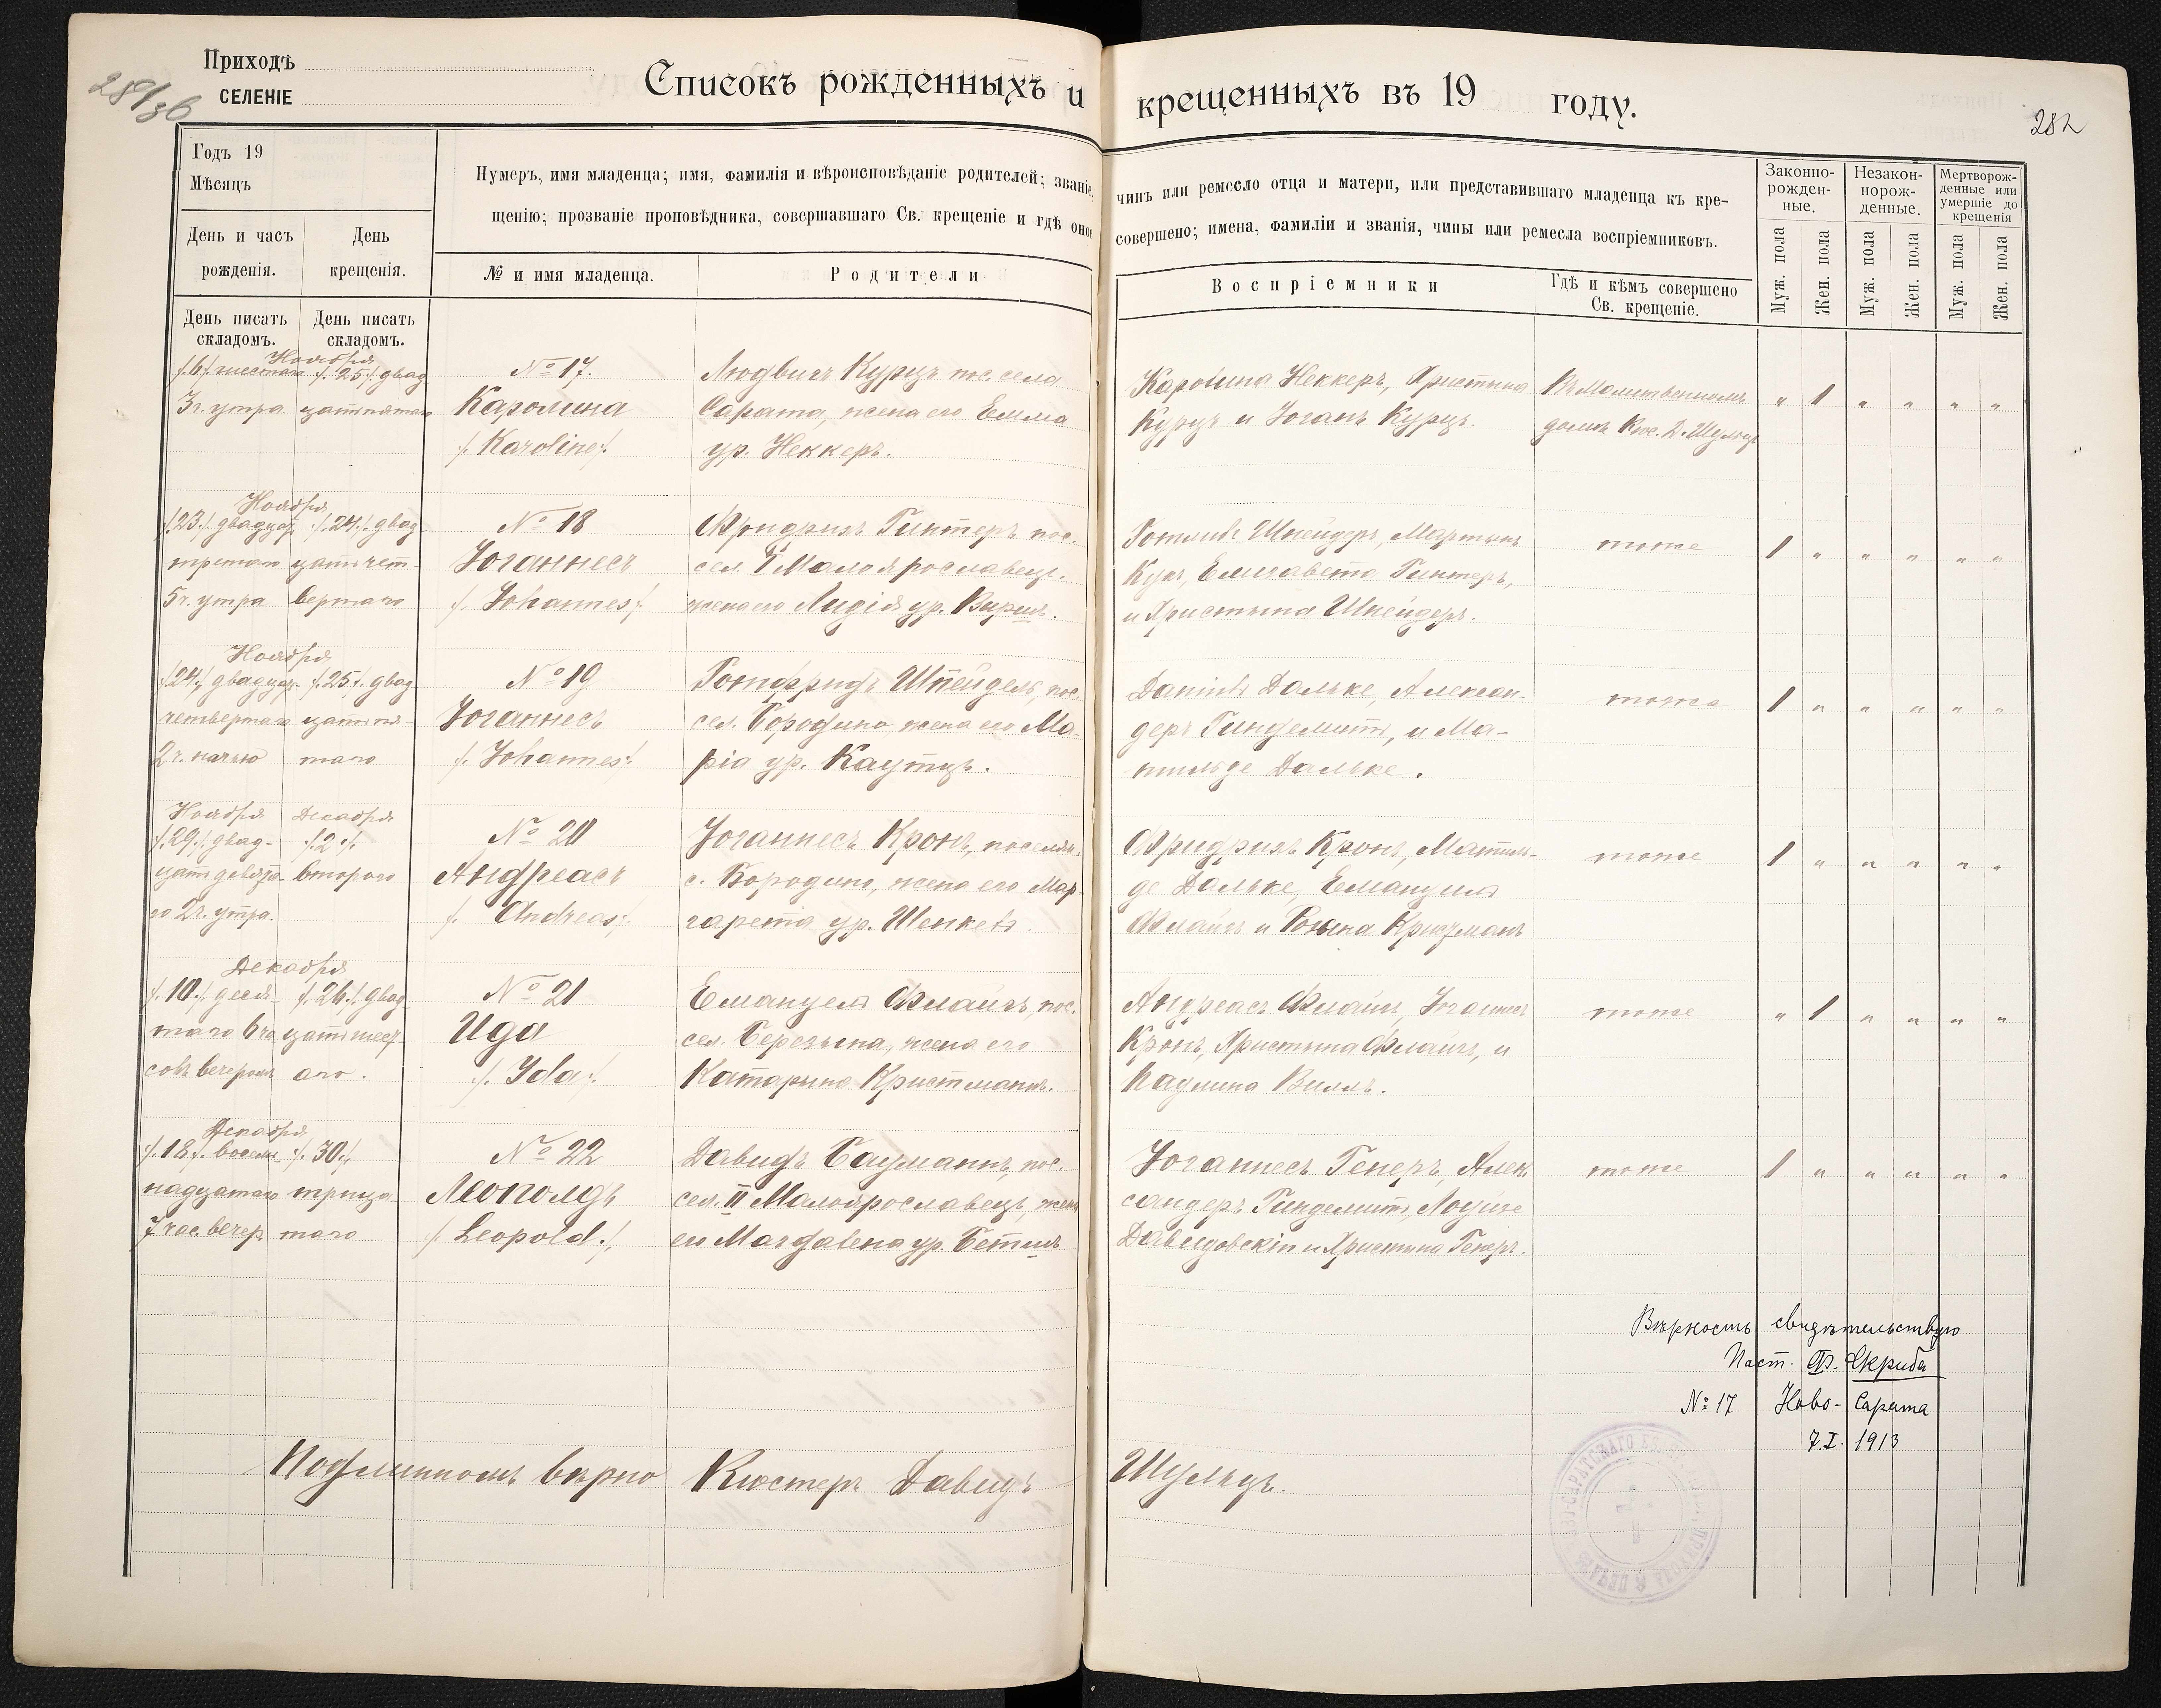 Приходъ
СЕЛЕНІЕ
Списокъ рожденныхъ и крещенныхъ въ 19 году.
282
Годъ 19
Мѣсяцъ
День и часъ рожденія.
День крещенія.
Нумеръ, имя младенца; имя, фамилія и вѣроисповѣданіе родителей; званіе, чинъ или ремесло отца и матери, или представившаго младенца къ кре-
щенію; прозваніе проповѣдника, совершавшаго Св. крещеніе и гдѣ оное совершено; имена, фамиліи и званія, чины или ремесла воспріемниковъ.
№ и имя младенца.
Родители
Воспріемники
Гдѣ и кѣмъ совершено
Св. крещеніе.
Законно-
рожден-
ные.
Незакон-
норож-
денные.
Мертворож-
денные или
умершіе до
крещенія
Муж. пола
Жен. пола
Муж. пола
Жен. пола
Муж. пола
Жен. пола
День писать
складомъ.
День писать
складомъ.
Ноября
/.6./ шестаго
3 ч. утра
/.25./ двад
цатьпятаго
№ 17.
Каролина
/. Karoline /.
Людвигъ Курцъ пос. села
Сарата, жена его Емма
ур. Неккеръ.
Каролина Неккеръ, Христина
Курцъ и Іоганъ Курцъ.
Въ Молитвенномъ
домѣ Кюс. Д. Шульцъ
" 1 " " " "
Ноября
/.23./ двадцать
третьяго
5 ч. утра
/.24./ двад-
цать чет-
вертаго
№ 18
Іоганнесъ
/. Johannes /.
Фридрихъ Гинтеръ пос.
сел. I Малоярославец.
жена его Лидія ур.
Готлибъ Шнейдеръ, Мартинъ
Кукъ, Елисавета Гинтеръ,
и Христина Шнейдеръ.
тоже
1 " " " " "
Ноября
/.24./ двадцать
четвертаго
2 ч. ночью
/.25./ двад
цать пя-
таго
№ 19
Іоганнесъ
/. Johannes /.
Готфридъ Шпейдель, пос.
сел. Бородино, жена его Ма-
ріа ур. Каутцъ.
Даніилъ Дальке, Алексан-
деръ Гинделитъ, и Ма-
тильде Дальке.
тоже
1 " " " " "
Ноября
/.29./ двад-
цать девята-
го 2 ч. утра.
Декабря
/.2./
второго
№ 20
Андреасъ
/. Andreas /.
Іоганнесъ Кронъ, поселян.
с. Бородино, жена его Мар-
гарета ур. Шенкель.
Фридрихъ Кронъ, Матиль-
де Дальке, Емануилъ
Флайгъ и Розына Кристманъ
тоже
1 " " " " "
Декабря
/.10./ деся-
таго 6 ча
совъ вечеромъ
/.26./ двад
цать шест
аго.
№ 21
Ида
/. Ida /.
Емануелъ Флайгъ, пос.
сел. Березына, жена его
Катарына Кристманъ.
Андреасъ Флайгъ, Іоганнесъ
Кронъ, Христына Флаигъ, и
Паулина Виллъ.
тоже
" 1 " " " "
Декабря
/.18./ восем
надцатаго
7 час. вечер.
/.30./
тридца-
таго
№ 22
Леопольдъ
/. Leopold /.
Давидъ Бауманнъ, пос.
сел. II Малоярославецъ, жена
его Магдалена ур.
Іоганнесъ Геперъ, Алек
сандеръ Гинделитъ, Лоуизе
Давидовскіи и Христина Геперъ.
тоже
1 " " " " "
Вѣрность свидѣтельствую
Паст. Ф. Скриба
№ 17 Ново-Сарата
7.I.1913
Подлинномъ вѣрно Кюстеръ Давидъ Шульцъ.